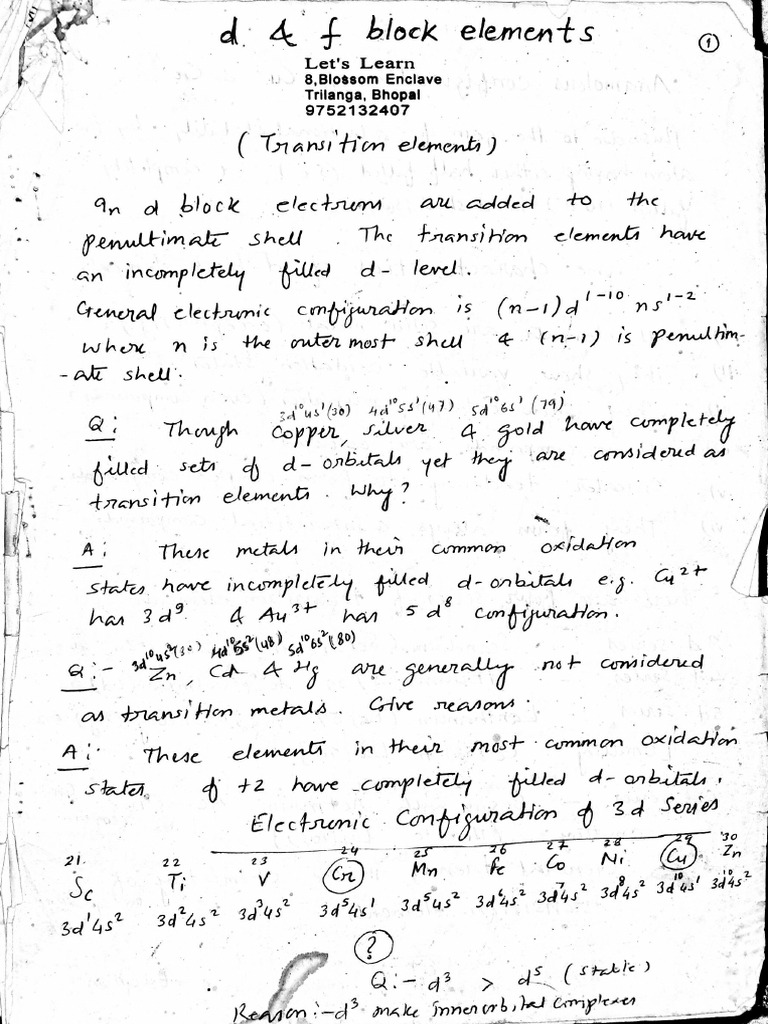 d & f block elements
①
Let's Learn
8,Blossom Enclave
Trilanga, Bhopal
9752132407
(Transition elements)
In d block electrons are added to the
penultimate shell. The transition elements have
an incompletely filled d-level.
General electronic configuration is (n-1)d¹⁻¹⁰ ns¹⁻²
where n is the outermost shell & (n-1) is penultim-
-ate shell.
3d¹⁰4s¹(30) 4d¹⁰5s¹(47) 5d¹⁰6s¹(79)
Q: Though Copper, silver & gold have completely
filled sets of d-orbitals yet they are considered as
transition elements. Why?
A: These metals in their common oxidation
states have incompletely filled d-orbitals e.g. Cu²⁺
has 3d⁹ & Au³⁺ has 5d⁸ configuration.
3d¹⁰4s²(30) 4d¹⁰5s²(48) 5d¹⁰6s²(80)
Q:- Zn, Cd & Hg are generally not considered
as transition metals. Give reasons.
A: These elements in their most common oxidation
states of +2 have completely filled d-orbitals.
Electronic Configuration of 3d Series
21 22 23 24 25 26 27 28 29 30
Sc Ti V Cr Mn Fe Co Ni Cu Zn
3d¹4s² 3d²4s² 3d³4s² 3d⁵4s¹ 3d⁵4s² 3d⁶4s² 3d⁷4s² 3d⁸4s² 3d¹⁰4s¹ 3d¹⁰4s²
?
Q:- d³ > d⁵ (stable)
Reason:- d³ make inner orbital complexes